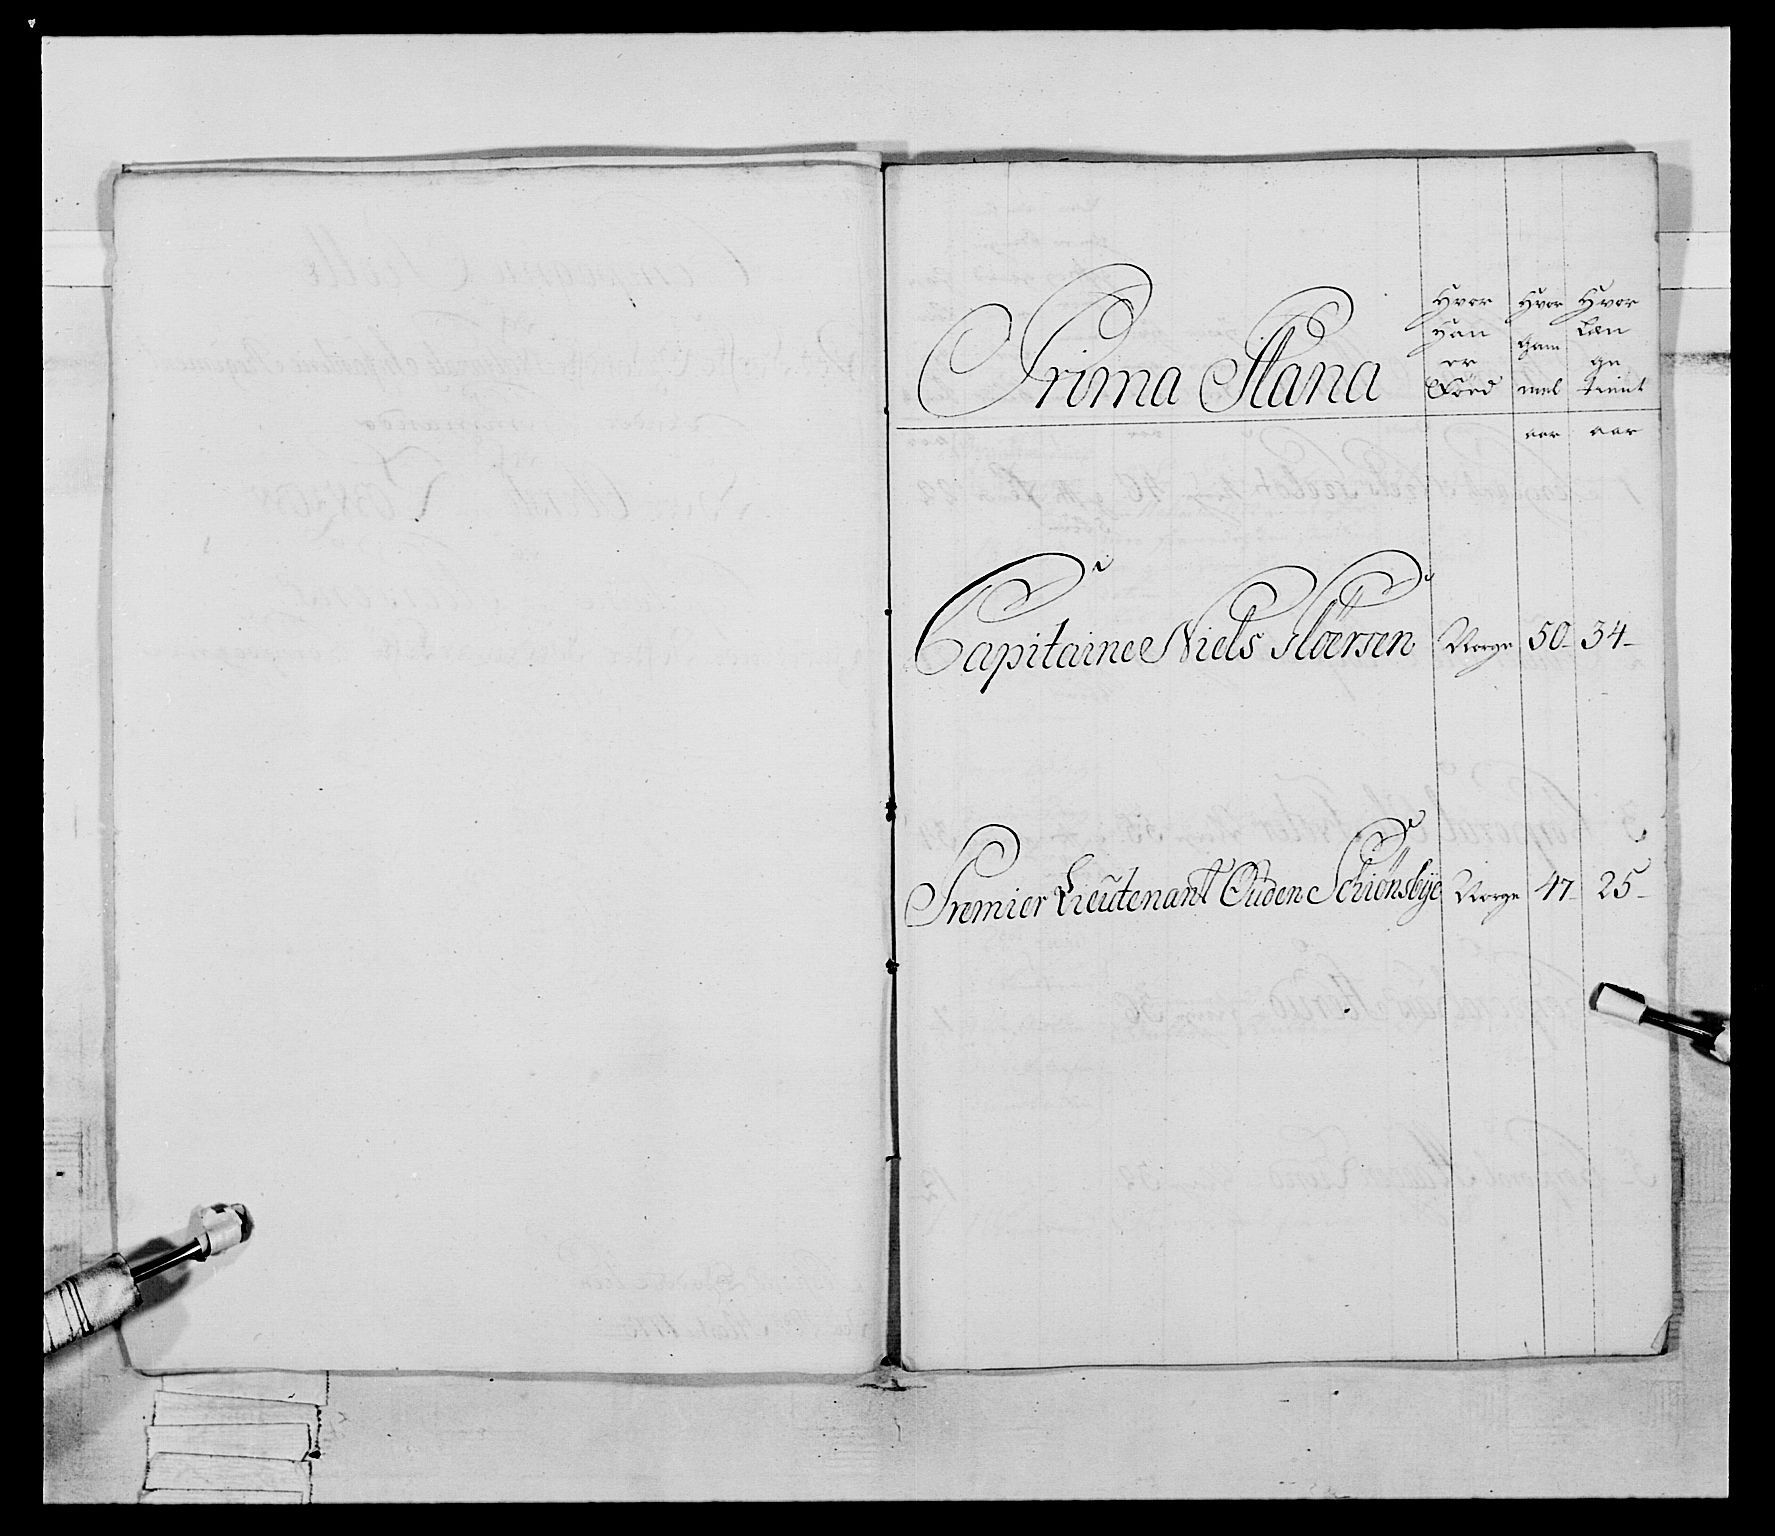 Prima Plana
Hvor Han er Föed
Hvor gam mel aar
Hvor Læn ge tient aar
Capitaine Niels Floersen Norge 50 34
Premier Lieutenant Ouden Schiönsbÿe Norge 47 25